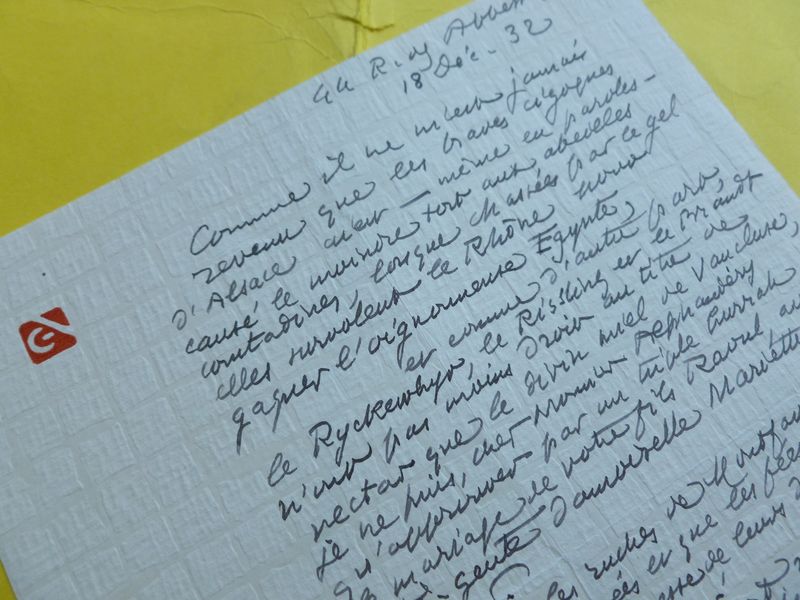 44 R. des Abbes
18 Déc. 32
Comme il ne m'est jamais
revenu que les braves cigognes
d'Alsace aient — même en paroles —
causé le moindre tort aux abeilles
comtadines, lorsque chassées par le gel
elles survolent le Rhône pour
gagner l'oignonneuse Egypte,
et comme d'autre part,
le Ryckewhyr, le Rissling et le Brandt
n'ont pas moins droit au titre de
nectar que le divin miel de Vaucluse,
je ne puis, cher Monsieur Alphandéry
qu'approuver par un triple hurrah
le mariage de votre fils Raoul, au
gente Damoiselle Mariette
les ruches de Montfav
és et que les fées
de leurs